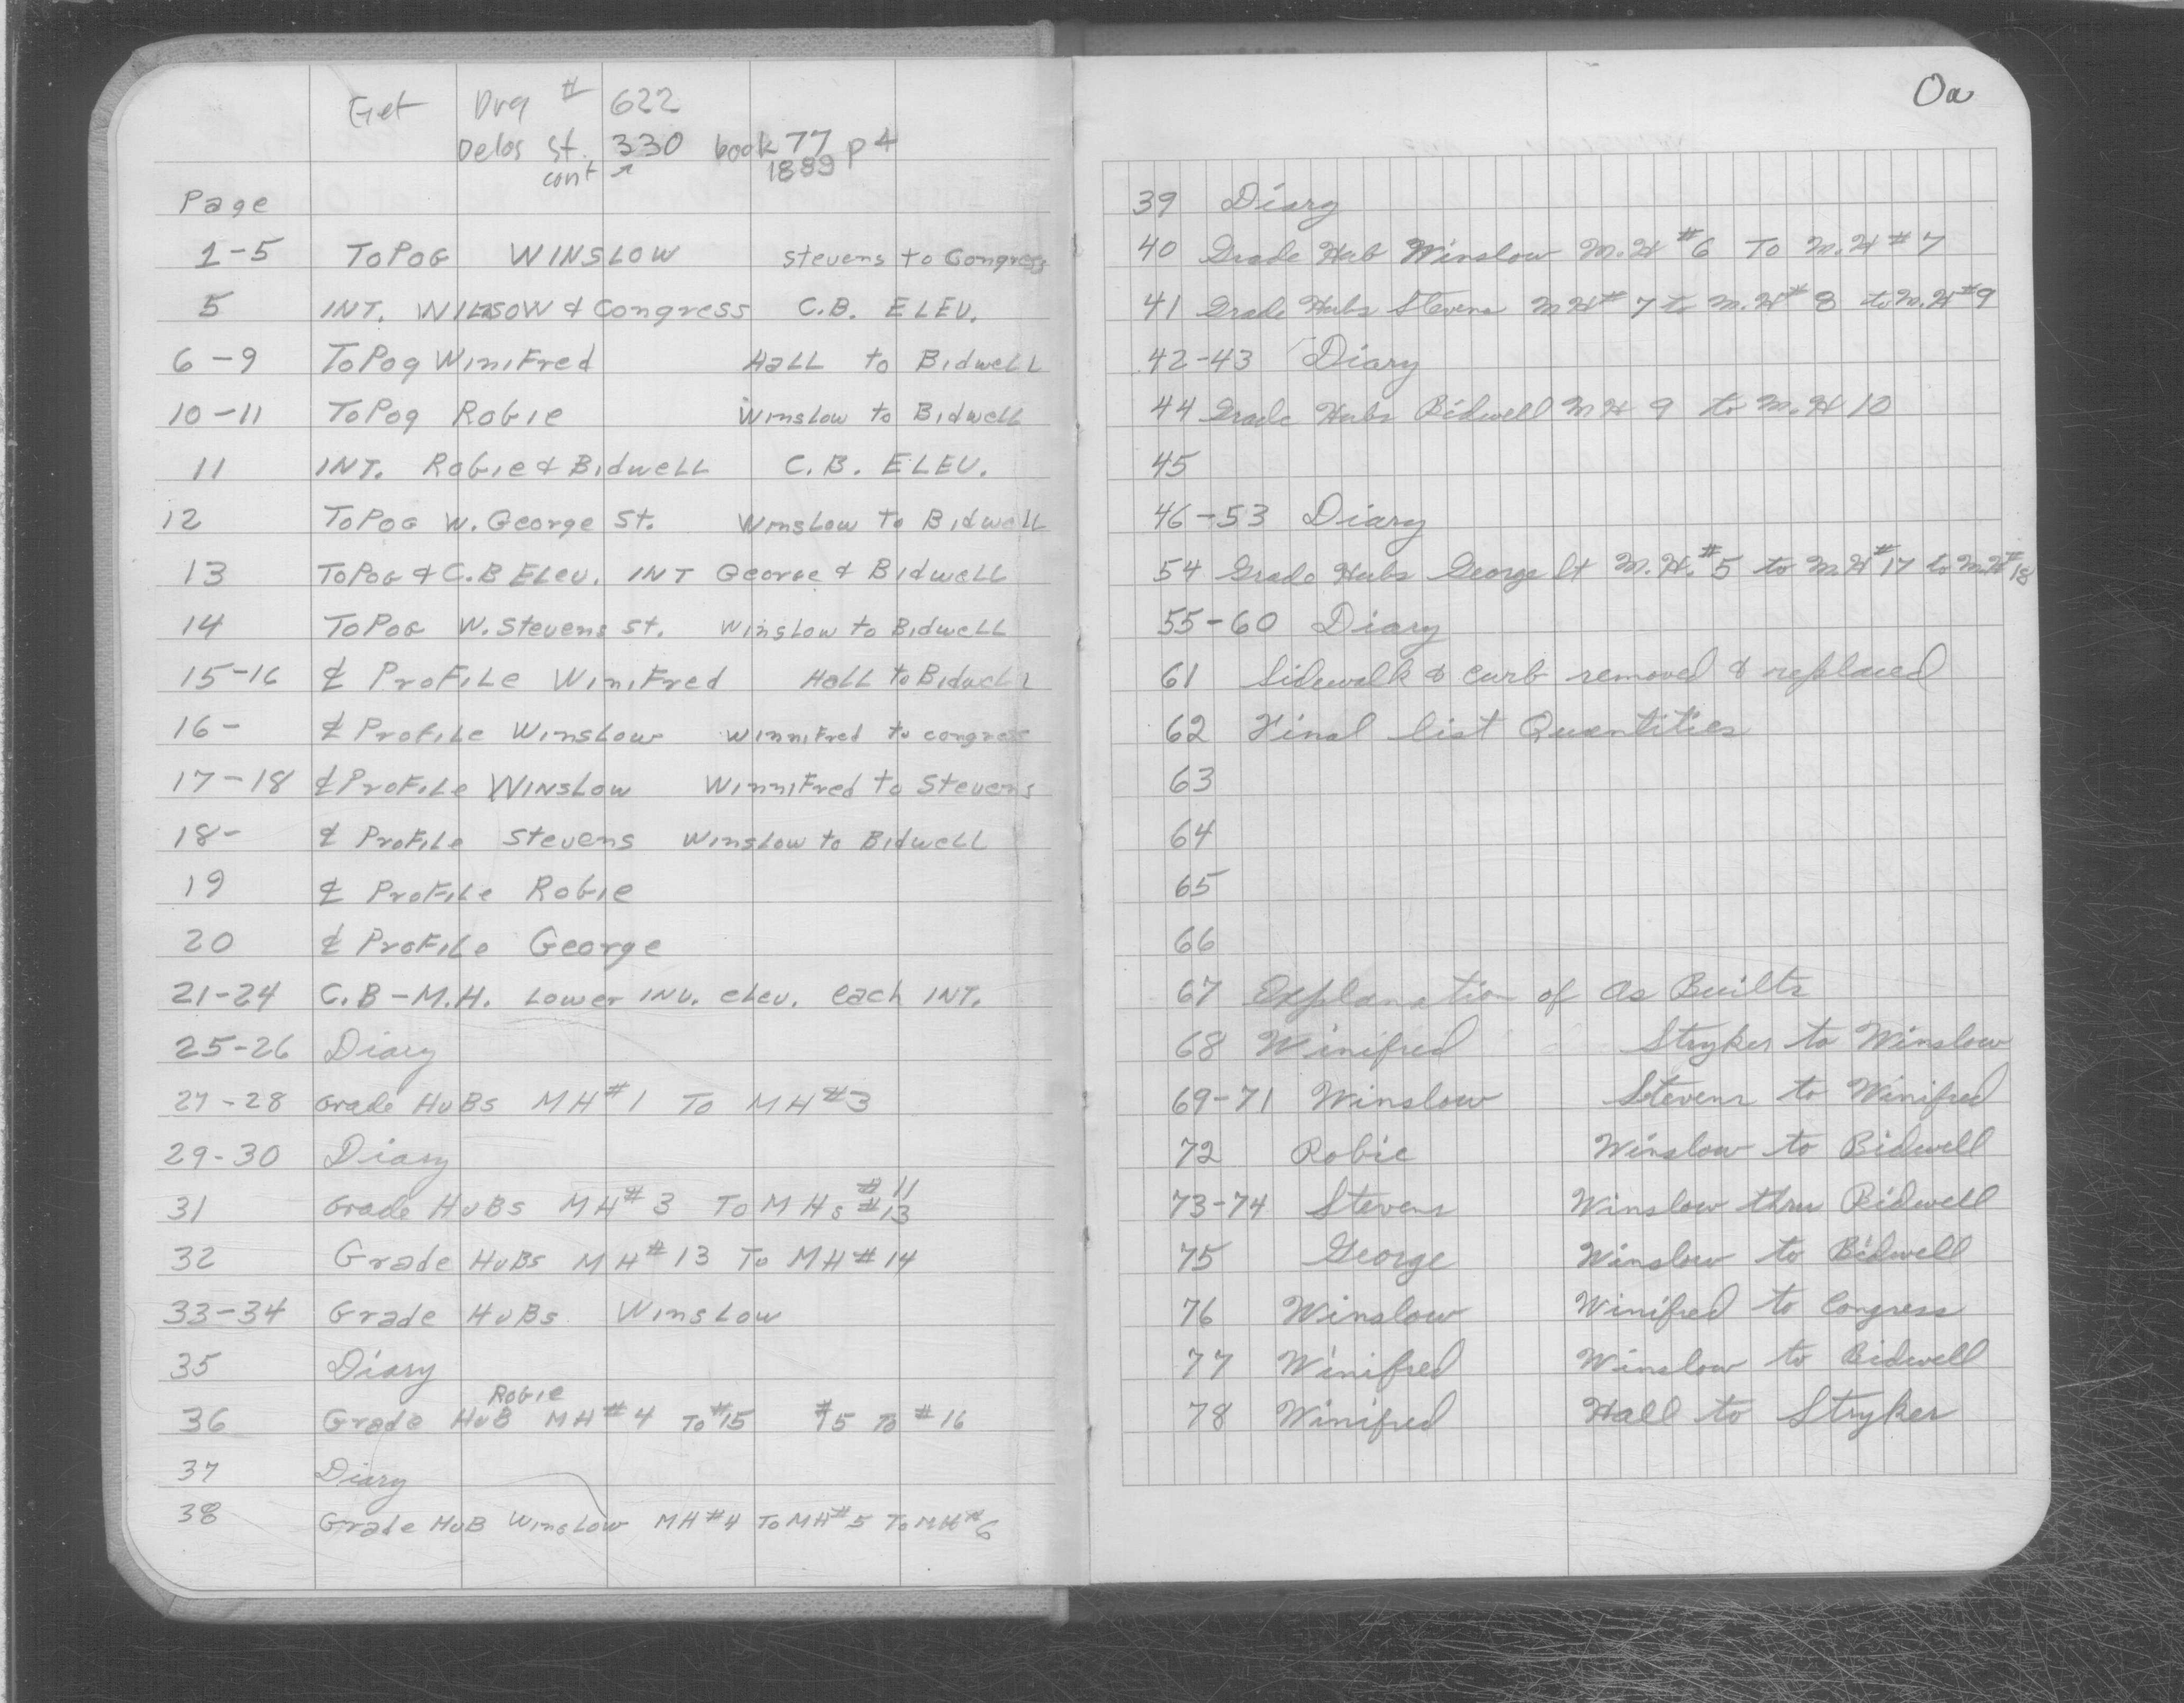 Get Drg # 622
Delos St. 330 book 77 p 4
cont ↗ 1889
Page
1-5 Topog Winslow Stevens to Congress
5 INT. Wilsow & Congress C.B. Elev.
6-9 Topog Winifred Hall to Bidwell
10-11 Topog Robie Winslow to Bidwell
11 INT. Robie & Bidwell C.B. Elev.
12 Topog W. George St. Winslow to Bidwell
13 Topog & C.B Elev. INT George & Bidwell
14 Topog W. Stevens St. Winslow to Bidwell
15-16 ₵ Profile Winifred Hall to Bidwell
16- ₵ Profile Winslow Winnifred to Congress
17-18 ₵ Profile Winslow Winnifred to Stevens
18- ₵ Profile Stevens Winslow to Bidwell
19 ₵ Profile Robie
20 ₵ Profile George
21-24 C.B-M.H. Lower INV. elev. each INT.
25-26 Diary
27-28 Grade Hubs MH#1 To MH#3
29-30 Diary
31 Grade Hubs MH#3 To MHs #11 #13
32 Grade Hubs MH#13 To MH#14
33-34 Grade Hubs Winslow
35 Diary
Robie
36 Grade Hub MH#4 To #15 #5 To #16
37 Diary
38 Grade Hub Winslow MH#4 To MH#5 To MH#6
Oa
39 Diary
40 Grade Hub Winslow M.H #6 To M.H #7
41 Grade Hubs Stevens MH# 7 to M.H# 8 to M.H #9
42-43 Diary
44 Grade Hubs Bidwell MH 9 to M.H 10
45
46-53 Diary
54 Grade Hubs George St M.H.#5 to M.H#17 to M.H#18
55-60 Diary
61 Sidewalk & curb removed & replaced
62 Final list Quantities
63
64
65
66
67 Explanation of As Builts
68 Winifred Stryker to Winslow
69-71 Winslow Stevens to Winifred
72 Robie Winslow to Bidwell
73-74 Stevens Winslow thru Bidwell
75 George Winslow to Bidwell
76 Winslow Winifred to Congress
77 Winifred Winslow to Bidwell
78 Winifred Hall to Stryker